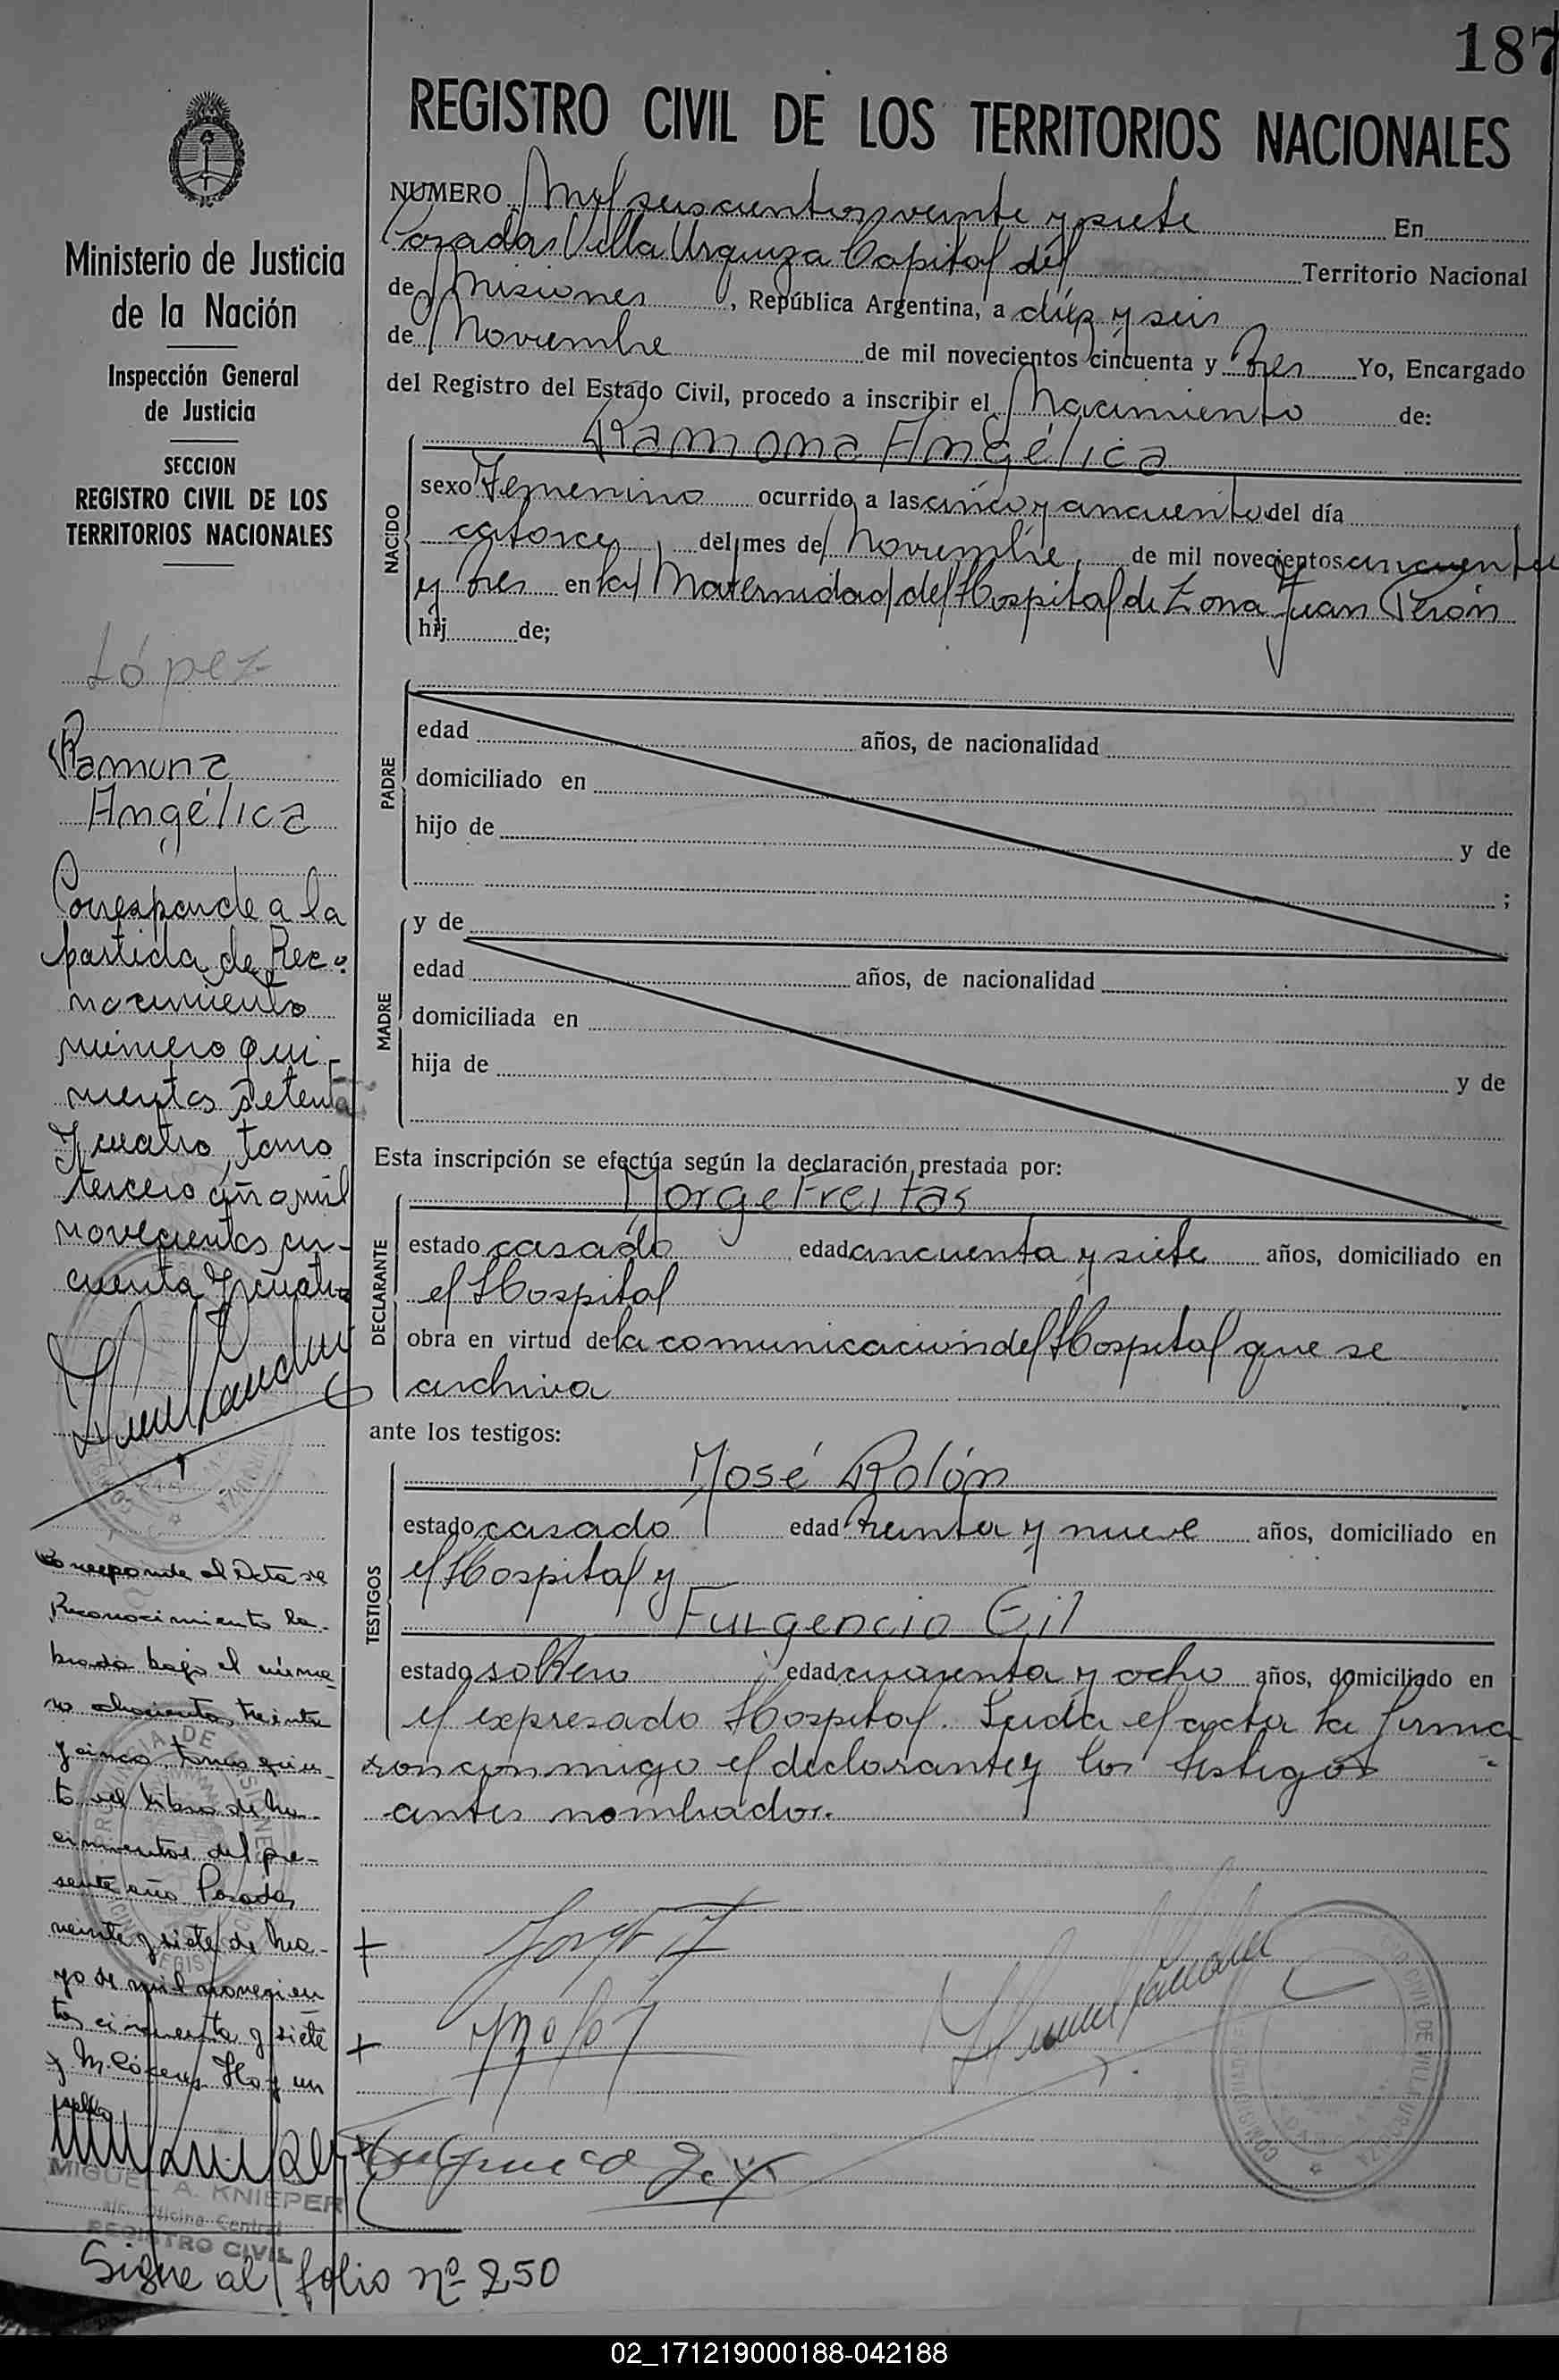 187
REGISTRO CIVIL DE LOS TERRITORIOS NACIONALES
Ministerio de Justicia
de la Nación
Inspección General
de Justicia
SECCION
REGISTRO CIVIL DE LOS
TERRITORIOS NACIONALES
López
Ramona
Angélica
Corresponde a la
partida de Reco
nocimiento
número qui-
nientos setenta
y cuatro, tomo
tercero año mil
novecientos cin-
cuenta y cuatro
Corresponde al Acta de
Reconocimiento la-
brada bajo el núme-
ro ochocientos treinta
y cinco, tomo quin-
to del Libro de Na-
cimientos del pre-
sente año Posadas
veinte y siete de Ma-
yo de mil novecien
tos cincuenta y siete
Hay un
sello
MIGUEL A. KNIEPER
a/c. Oficina Central
REGISTRO CIVIL
NUMERO Mil seiscientos veinte y siete En
Posadas Villa Urquiza Capital del Territorio Nacional
de Misiones, República Argentina, a diez y seis
de Noviembre de mil novecientos cincuenta y tres Yo, Encargado
del Registro del Estado Civil, procedo a inscribir el Nacimiento de:
NACIDO
Ramona Angélica
sexo Femenino ocurrido a las cinco y cincuenta del día
catorce, del mes de Noviembre, de mil novecientos cincuenta
y tres en la Maternidad del Hospital de Zona Juan Perón
hij de;
PADRE
edad años, de nacionalidad
domiciliado en
hijo de y de
;
MADRE
y de
edad años, de nacionalidad
domiciliada en
hija de y de
Esta inscripción se efectúa según la declaración prestada por:
DECLARANTE
Jorge Freitas
estado casado edad cincuenta y siete años, domiciliado en
el Hospital
obra en virtud de la comunicación del Hospital que se
archiva
ante los testigos:
TESTIGOS
José Rolón
estado casado edad treinta y nueve años, domiciliado en
el Hospital y
Fulgencio Gil
estado soltero edad cuarenta y ocho años, domiciliado en
el expresado Hospital. Leída el acta la firma
ron conmigo el declarante y los testigos
antes nombrados.
Sigue al folio nº 250
02_171219000188-042188